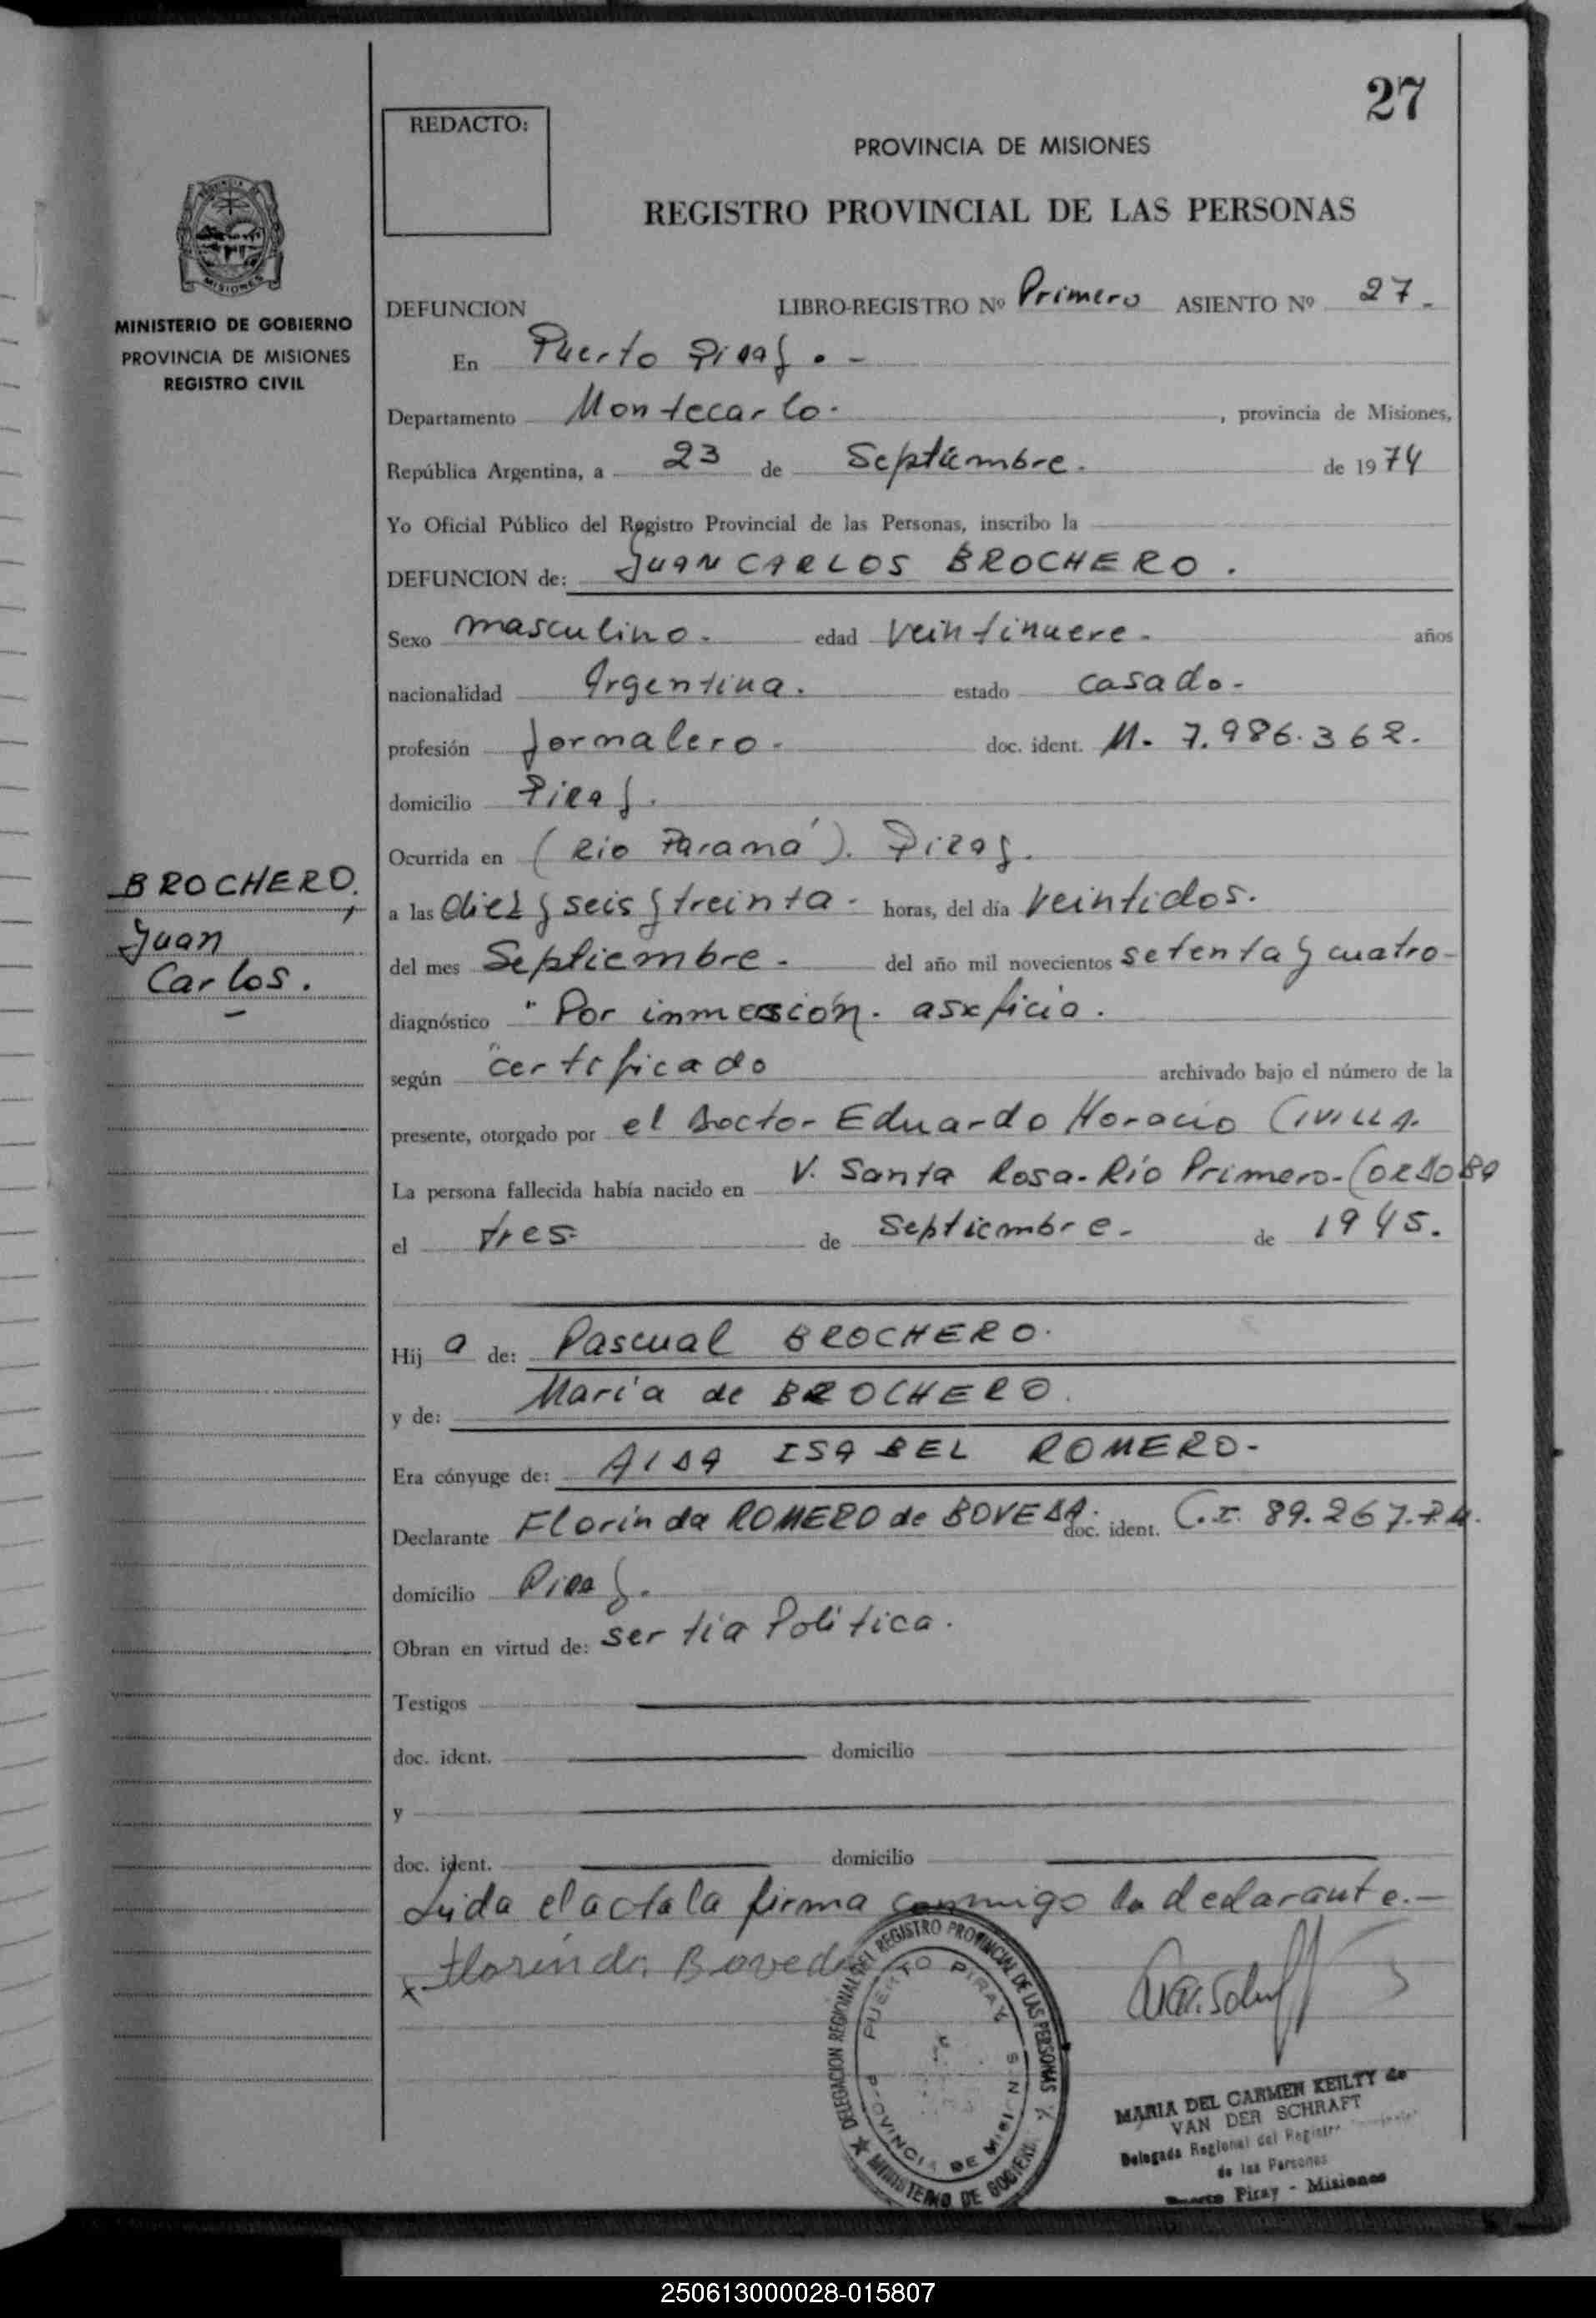 27
REDACTO:
PROVINCIA DE MISIONES
REGISTRO PROVINCIAL DE LAS PERSONAS
MISIONES
MINISTERIO DE GOBIERNO
PROVINCIA DE MISIONES
REGISTRO CIVIL
BROCHERO,
Juan
Carlos.
DEFUNCION LIBRO-REGISTRO Nº Primero ASIENTO Nº 27-
En Puerto Piray.-
Departamento Montecarlo. , provincia de Misiones,
República Argentina, a 23 de Septiembre. de 1974
Yo Oficial Público del Registro Provincial de las Personas, inscribo la
DEFUNCION de: JUAN CARLOS BROCHERO.
Sexo masculino. edad veintinueve. años
nacionalidad Argentina. estado casado-
profesión Jornalero. doc. ident. M. 7.986.362.
domicilio Piray.
Ocurrida en (Rio Paraná). Piray.
a las diez y seis y treinta. horas, del día veintidos.
del mes Septiembre. del año mil novecientos setenta y cuatro-
diagnóstico "Por inmersión. asxficia.
según "certificado archivado bajo el número de la
presente, otorgado por el Doctor Eduardo Horacio CIVILLA.
La persona fallecida había nacido en V. Santa Rosa-Río Primero-CORDOBA
el tres- de Septiembre- de 1945.
Hij o de: Pascual BROCHERO.
y de: María de BROCHERO.
Era cónyuge de: AIDA ISABEL ROMERO-
Declarante Florinda ROMERO de BOVEDA. doc. ident. C.I. 89.267.
domicilio Piray.
Obran en virtud de: ser tía Política.
Testigos
doc. ident. domicilio
y
doc. ident. domicilio
Leida el acta la firma conmigo la declarante.-
x Florinda Boveda
DELEGACION REGIONAL DEL REGISTRO PROVINCIAL DE LAS PERSONAS
MINISTERIO DE GOBIERNO
PUERTO PIRAY
PROVINCIA DE MISIONES
MARIA DEL CARMEN KEILTY de
VAN DER SCHRAFT
Delegada Regional del Registro
de las Personas
Puerto Piray - Misiones
250613000028-015807